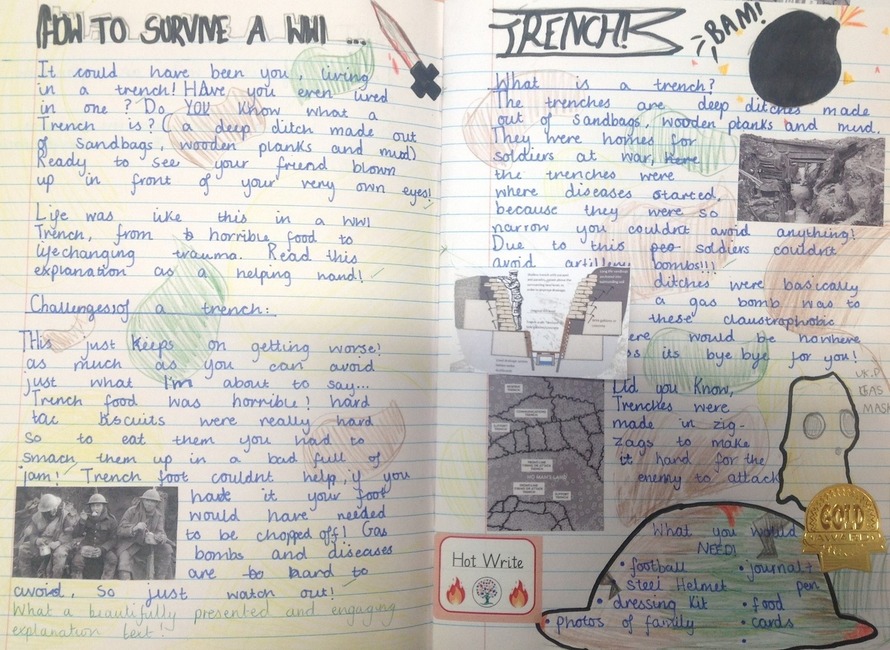 HOW TO SURVIVE A WWI ...
It could have been you, living
in a trench! HAve you even lived
in one? Do YOU know what a
Trench is? ( a deep ditch made out
of sandbags, wooden planks and mud)
Ready to see your friend blown
up in front of your very own eyes!
Life was like this in a WWI
Trench, from horrible food to
lifechanging trauma. Read this
explanation as a helping hand!
Challenges of a trench:
THis just keeps on getting worse!
as much as you can avoid
just what I'm about to say...
Trench food was horrible! hard
tac biscuits were really hard
so to eat them you had to
smach them up in a bad full of
jam! Trench foot couldnt help, if you
have it your foot
would have needed
to be chopped off! Gas
bombs and diseases
are to hard to
avoid, so just watch out!
What a beautifully presented and engaging
explanation text!
TRENCH!
BAM!
What is a trench?
The trenches are deep ditches made
out of sandbags, wooden planks and mud.
They were homes for
soldiers at war, here
the trenches were
where diseases started,
because they were so
narrow you couldn't avoid anything!
Due to this soldiers couldnt
avoid artillery bombs!!!
ditches were basically
a gas bomb was to
these claustrophobic
ere would be nowhere
its bye bye for you!
Did you know,
Trenches were
made in zig-
zags to make
it hard for the
enemy to attack
GAS
MASK
NO MAN'S LAND
Hot Write
GOLD
AWARD
What you would
NEED!
• football
steel Helmet
• dressing kit
• photos of family
• journal +
pen
• food
• cards